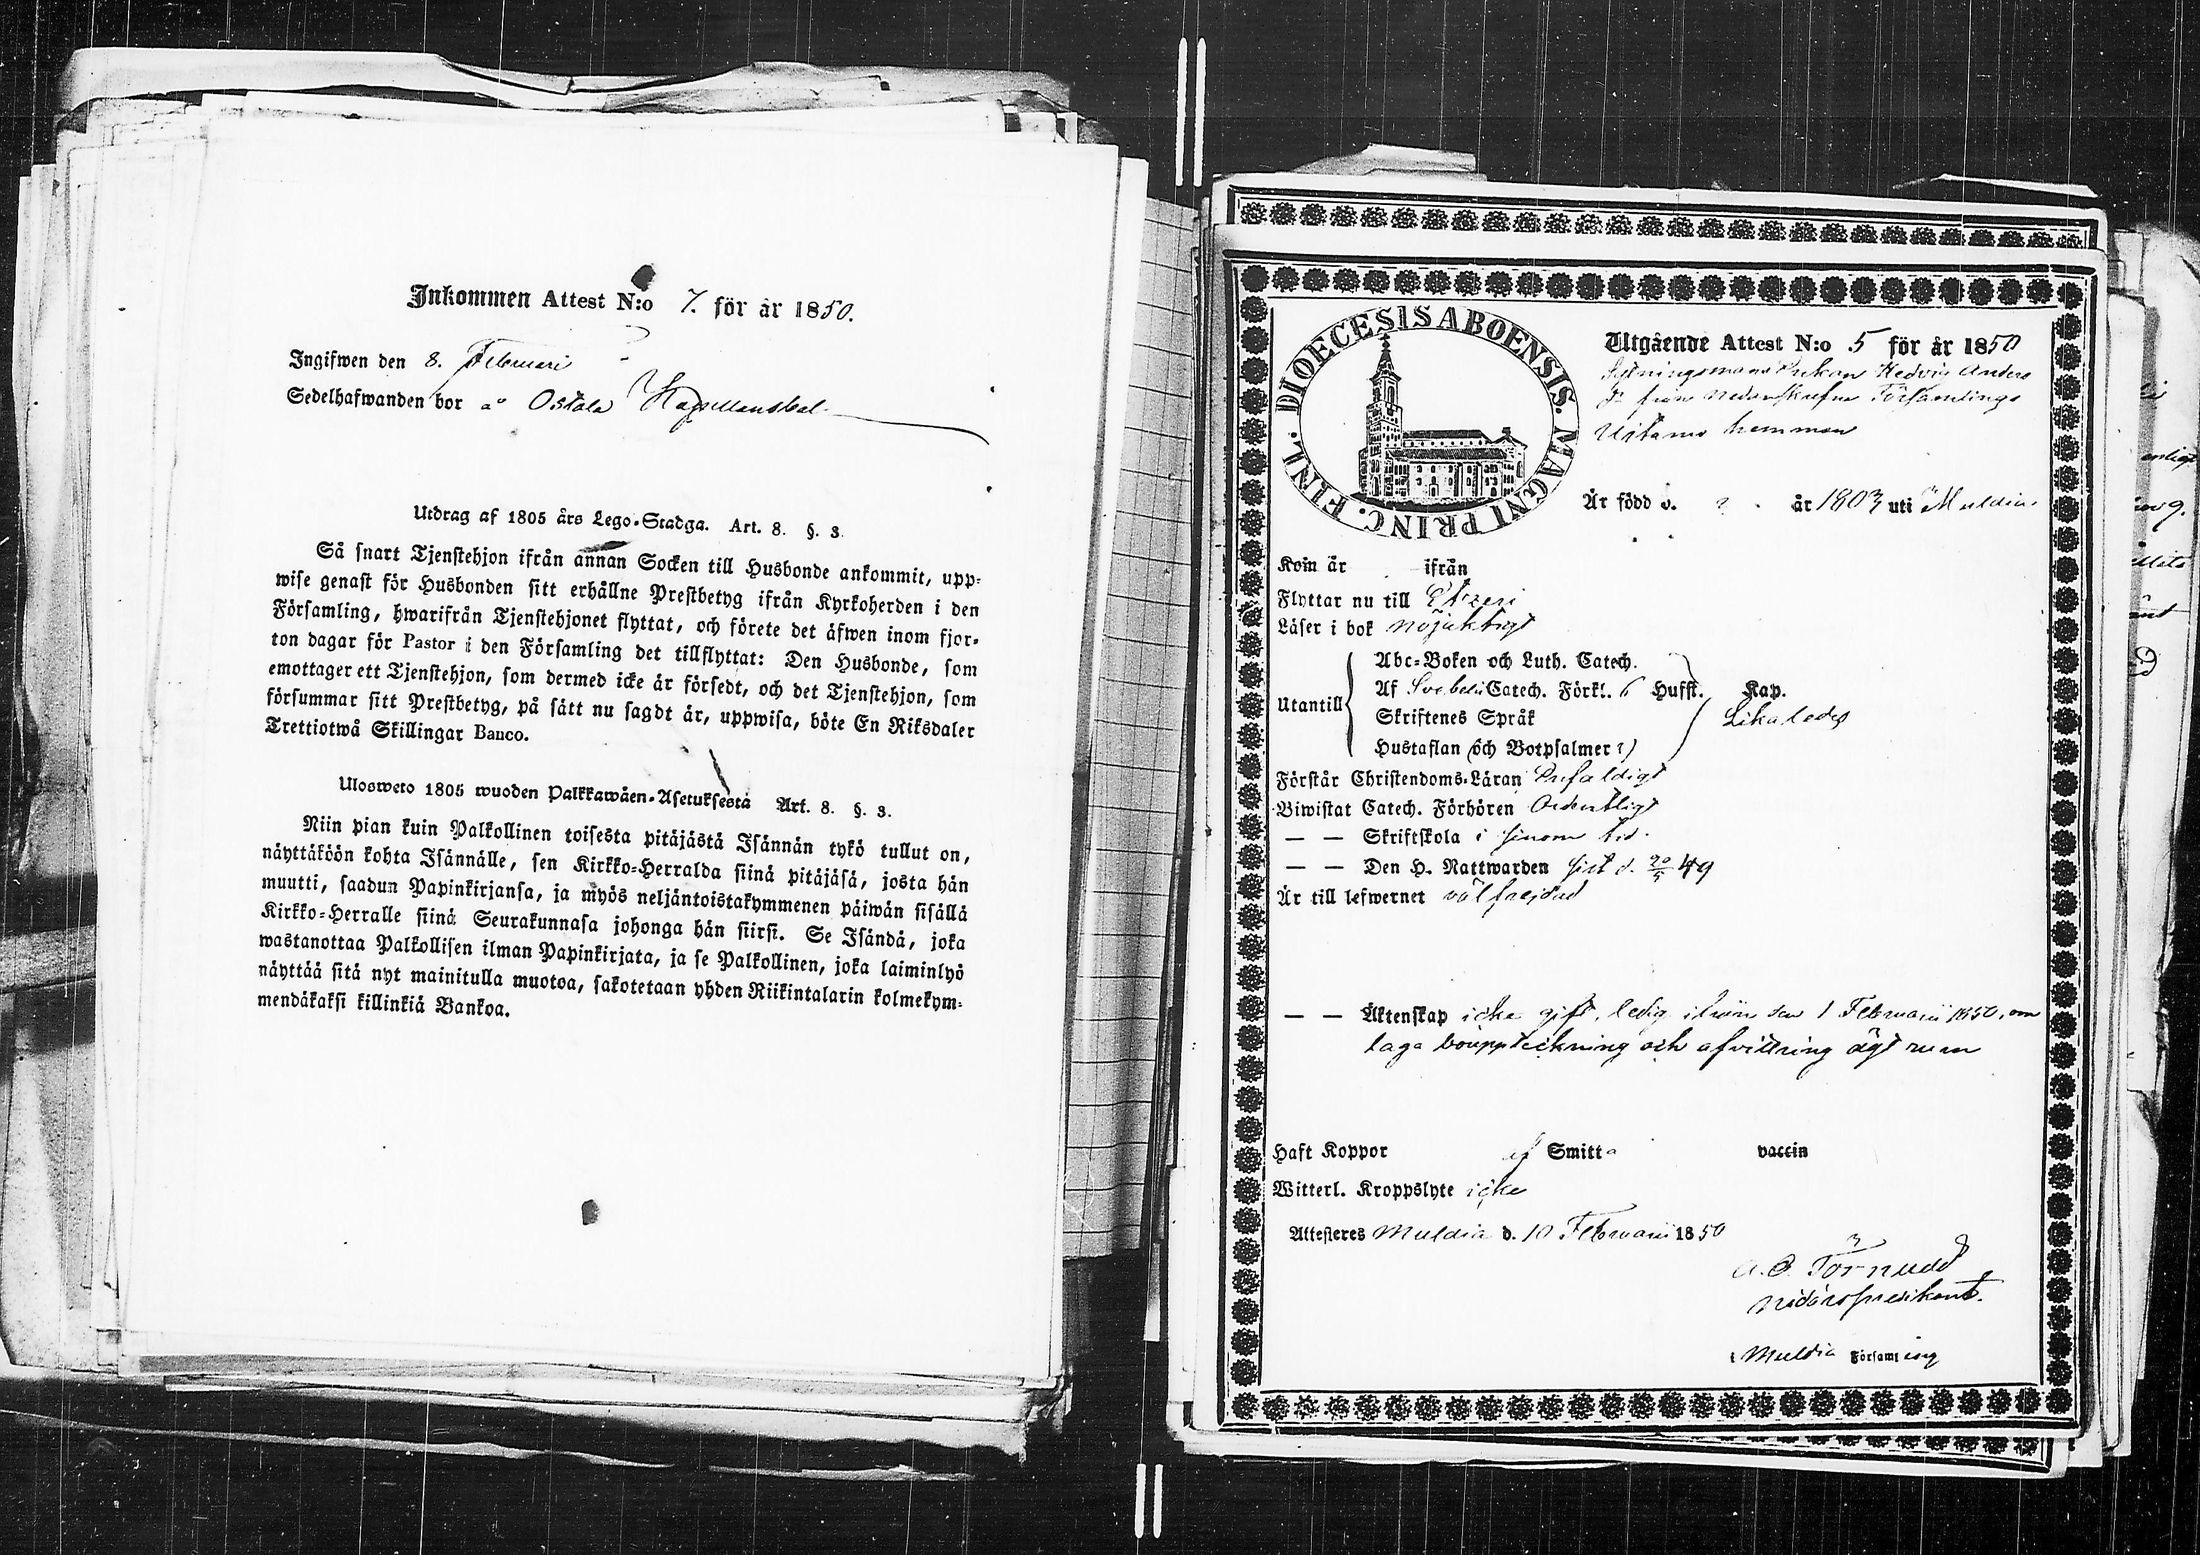 Inkommen Attest N:o 7. för år 1850.
Ingifwen den 8. Februari
Sedelhafwanden bor å Ostola Kapellansbol.
Utdrag af 1805 års Lego-Stadga. Art. 8. §. 3.
Så snart Tjenstehjon ifrån annan Socken till Husbonde ankommit, upp-
wise genast för Husbonden sitt erhållne Prestbetyg ifrån Kyrkoherden i den
Församling, hwarifrån Tjenstehjonet flyttat, och förete det äfwen inom fjor-
ton dagar för Pastor i den Församling det tillflyttat: Den Husbonde, som
emottager ett Tjenstehjon, som dermed icke är försedt, och det Tjenstehjon, som
försummar sitt Prestbetyg, på sätt nu sagdt är, uppwisa, böte En Riksdaler
Trettiotwå Skillingar Banco.
Ulosweto 1805 wuoden Palkkawäen-Asetuksesta Art. 8. §. 3.
Niin pian kuin Palkollinen toisesta pitäjästä Isännän tykö tullut on,
näyttäköön kohta Isännälle, sen Kirkko-Herralda siinä pitäjäsä, josta hän
muutti, saadun Papinkirjansa, ja myös neljäntoistakymmenen päiwän sisällä
Kirkko-Herralle siinä Seurakunnasa johonga hän siirsi. Se Isändä, joka
wastanottaa Palkollisen ilman Papinkirjata, ja se Palkollinen, joka laiminlyö
näyttää sitä nyt mainitulla muotoa, sakotetaan yhden Riikintalarin kolmekym-
mendäkaksi killinkiä Bankoa.
DIOECESIS ABOENSIS. MAGNI PRINC. FINL.
Utgående Attest N:o 5 för år 1850
Sytningsmans Enkan Hedvig Anders
dr från nedanskrefne Församlings
Uitamo hemman
Är född d. ? år 1803 uti Muldia
Kom år ifrån
Flyttar nu till Etzeri
Läser i bok nöjaktigt
Utantill
Abc-Boken och Luth. Catech.
Af Svebelii Catech. Förkl. 6 Hufst. Kap.
Skriftenes Språk
Hustaflan (och Botpsalmer?)
Likaledes
Förstår Christendoms-Läran Enfaldigt
Biwistat Catech. Förhören Ordentligt
— — Skriftskola i sinom tid.
— — Den H. Nattwarden sist d. 20/5 49
Är till lefwernet välfrejdad
— — Äktenskap icke gift, ledig ifrån den 1 Februarii 1850, om
laga bouppteckning och afvittring ägt rum
Haft Koppor af Smitta vaccin
Witterl. Kroppslyte icke
Attesteres Muldia d. 10 Februarii 1850
A. O. Törnudd
Nådårspredikant.
i Muldia Församling